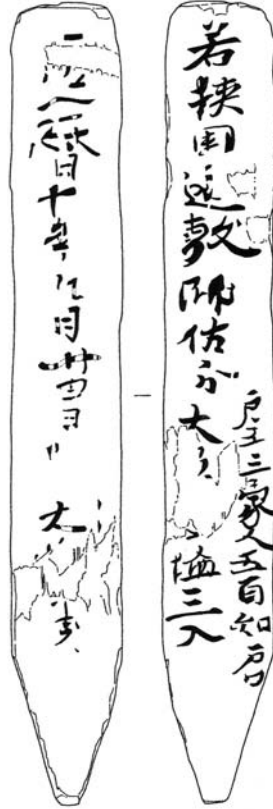 若狭国遠敷郡佐分
戸主三家人五百知戸口
塩三斗
延暦十年九月廿四日 大